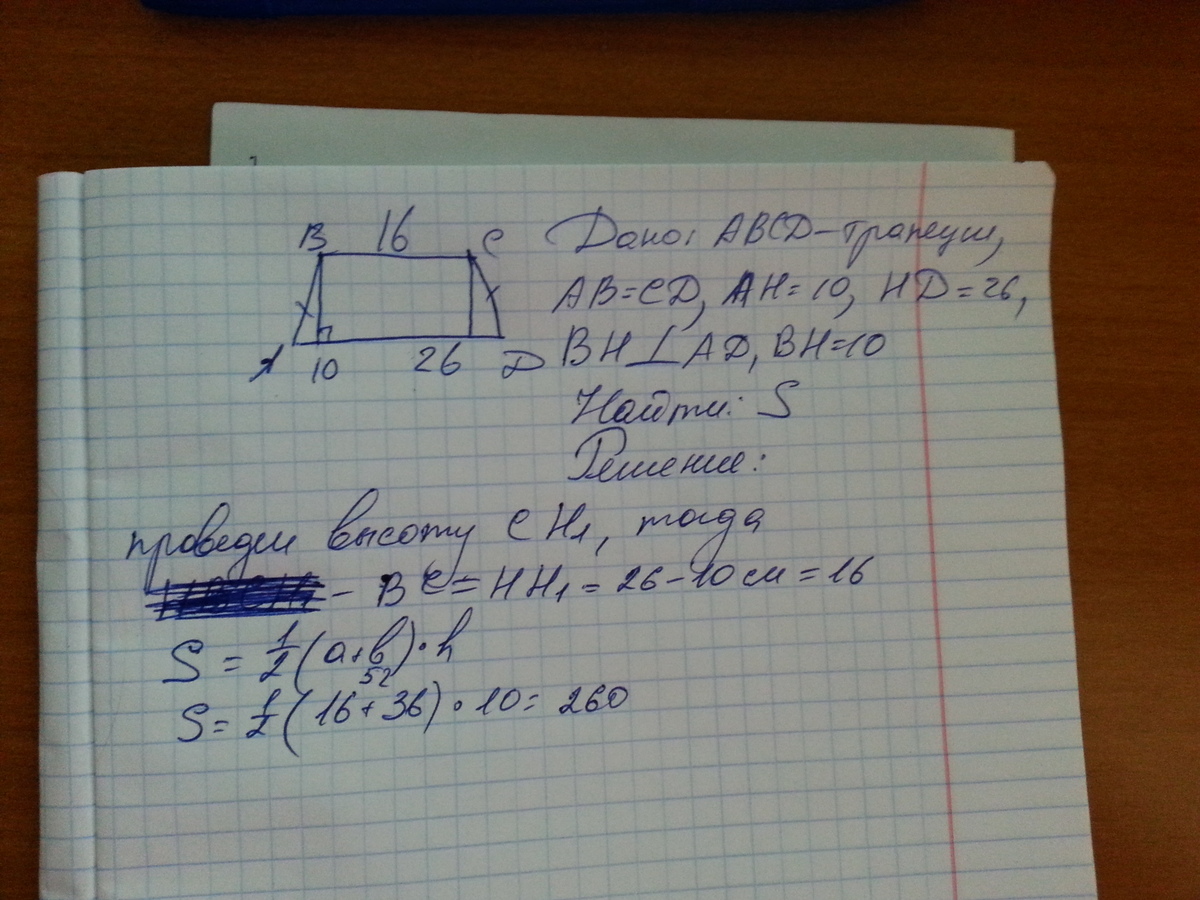 B 16 C
A 10 26 D
Дано: ABCD-трапеция,
AB=CD, AH=10, HD=26,
BH⊥AD, BH=10
Найти: S
Решение:
проведем высоту CH₁, тогда
- BC=HH₁=26-10см=16
S=1/2(a+b)·h
52
S=1/2(16+36)·10=260